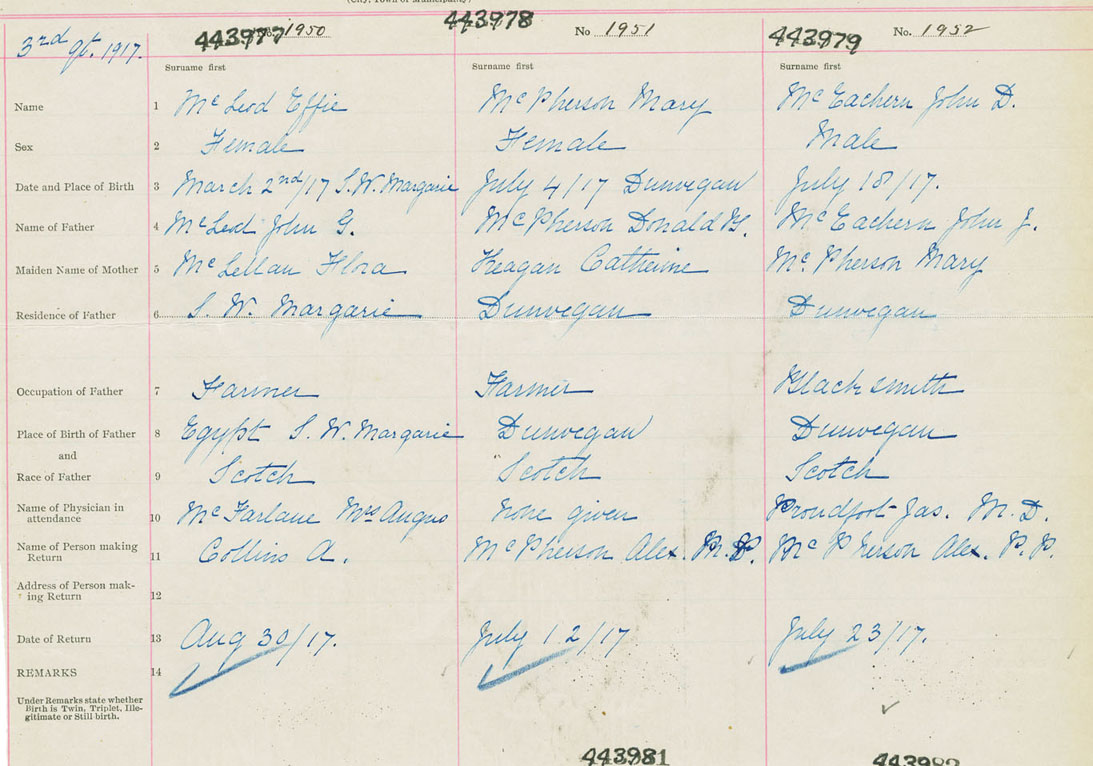 (City, Town or Municipality)
3rd qt. 1917.
443977 No. 1950 443978 No 1951 443979 No. 1952
Surname first Surname first Surname first
Name 1 McLeod Effie McPherson Mary McEachern John D.
Sex 2 Female Female Male
Date and Place of Birth 3 March 2nd/17 S.W. Margarie July 4/17 Dunvegan July 18/17.
Name of Father 4 McLeod John G. McPherson Donald H. McEachern John J.
Maiden Name of Mother 5 McLellan Flora Keagan Catherine McPherson Mary
Residence of Father 6 S. W. Margarie Dunvegan Dunvegan
Occupation of Father 7 Farmer Farmer Blacksmith
Place of Birth of Father 8 Egypt S. W. Margarie Dunvegan Dunvegan
and
Race of Father 9 Scotch Scotch Scotch
Name of Physician in
attendance 10 McFarlane Mrs Angus None given Proudfoot Jas. M.D.
Name of Person making
Return 11 Collins A. McPherson Alex. McPherson Alex. P. P.
Address of Person mak-
ing Return 12
Date of Return 13 Aug 30/17. July 12/17 July 23/17.
REMARKS 14
Under Remarks state whether
Birth is Twin, Triplet, Ille-
gitimate or Still birth.
443981